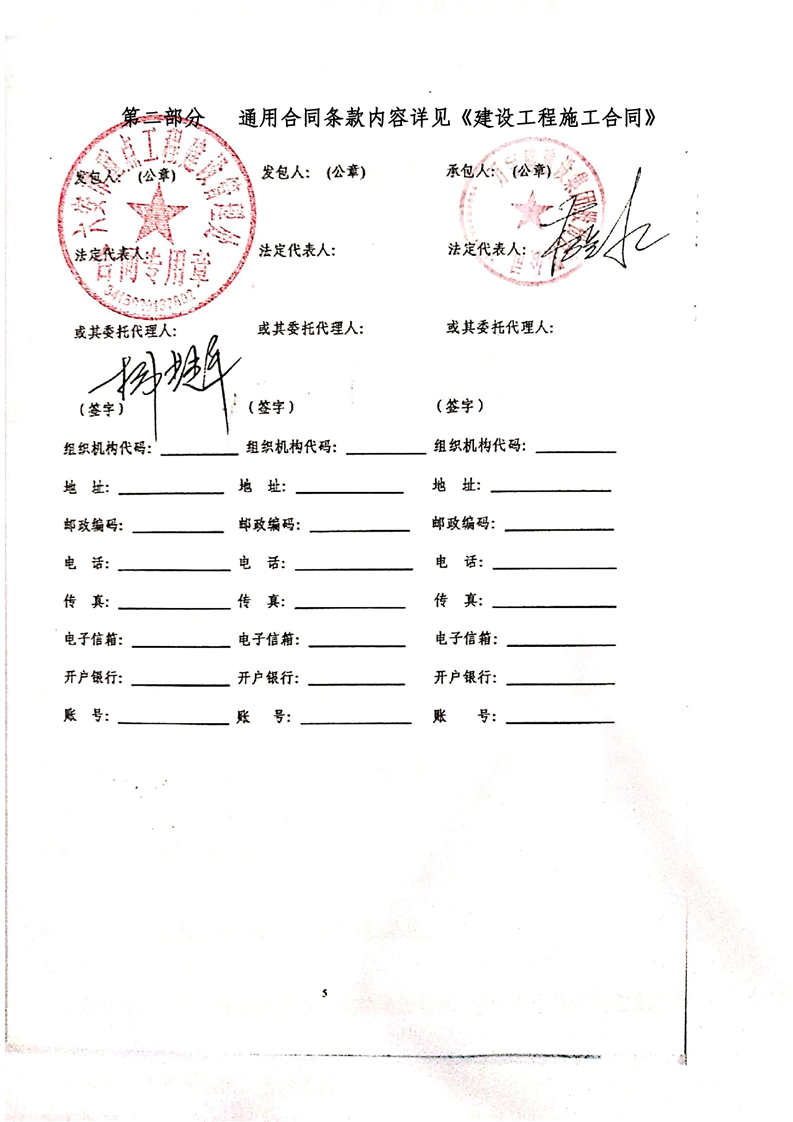 第二部分 通用合同条款内容详见《建设工程施工合同》
发包人：（公章） 发包人：（公章） 承包人：（公章）
法定代表人： 法定代表人： 法定代表人：
合同专用章
或其委托代理人： 或其委托代理人： 或其委托代理人：
（签字） （签字） （签字）
组织机构代码： 组织机构代码： 组织机构代码：
地 址： 地 址： 地 址：
邮政编码： 邮政编码： 邮政编码：
电 话： 电 话： 电 话：
传 真： 传 真： 传 真：
电子信箱： 电子信箱： 电子信箱：
开户银行： 开户银行： 开户银行：
账 号： 账 号： 账 号：
5